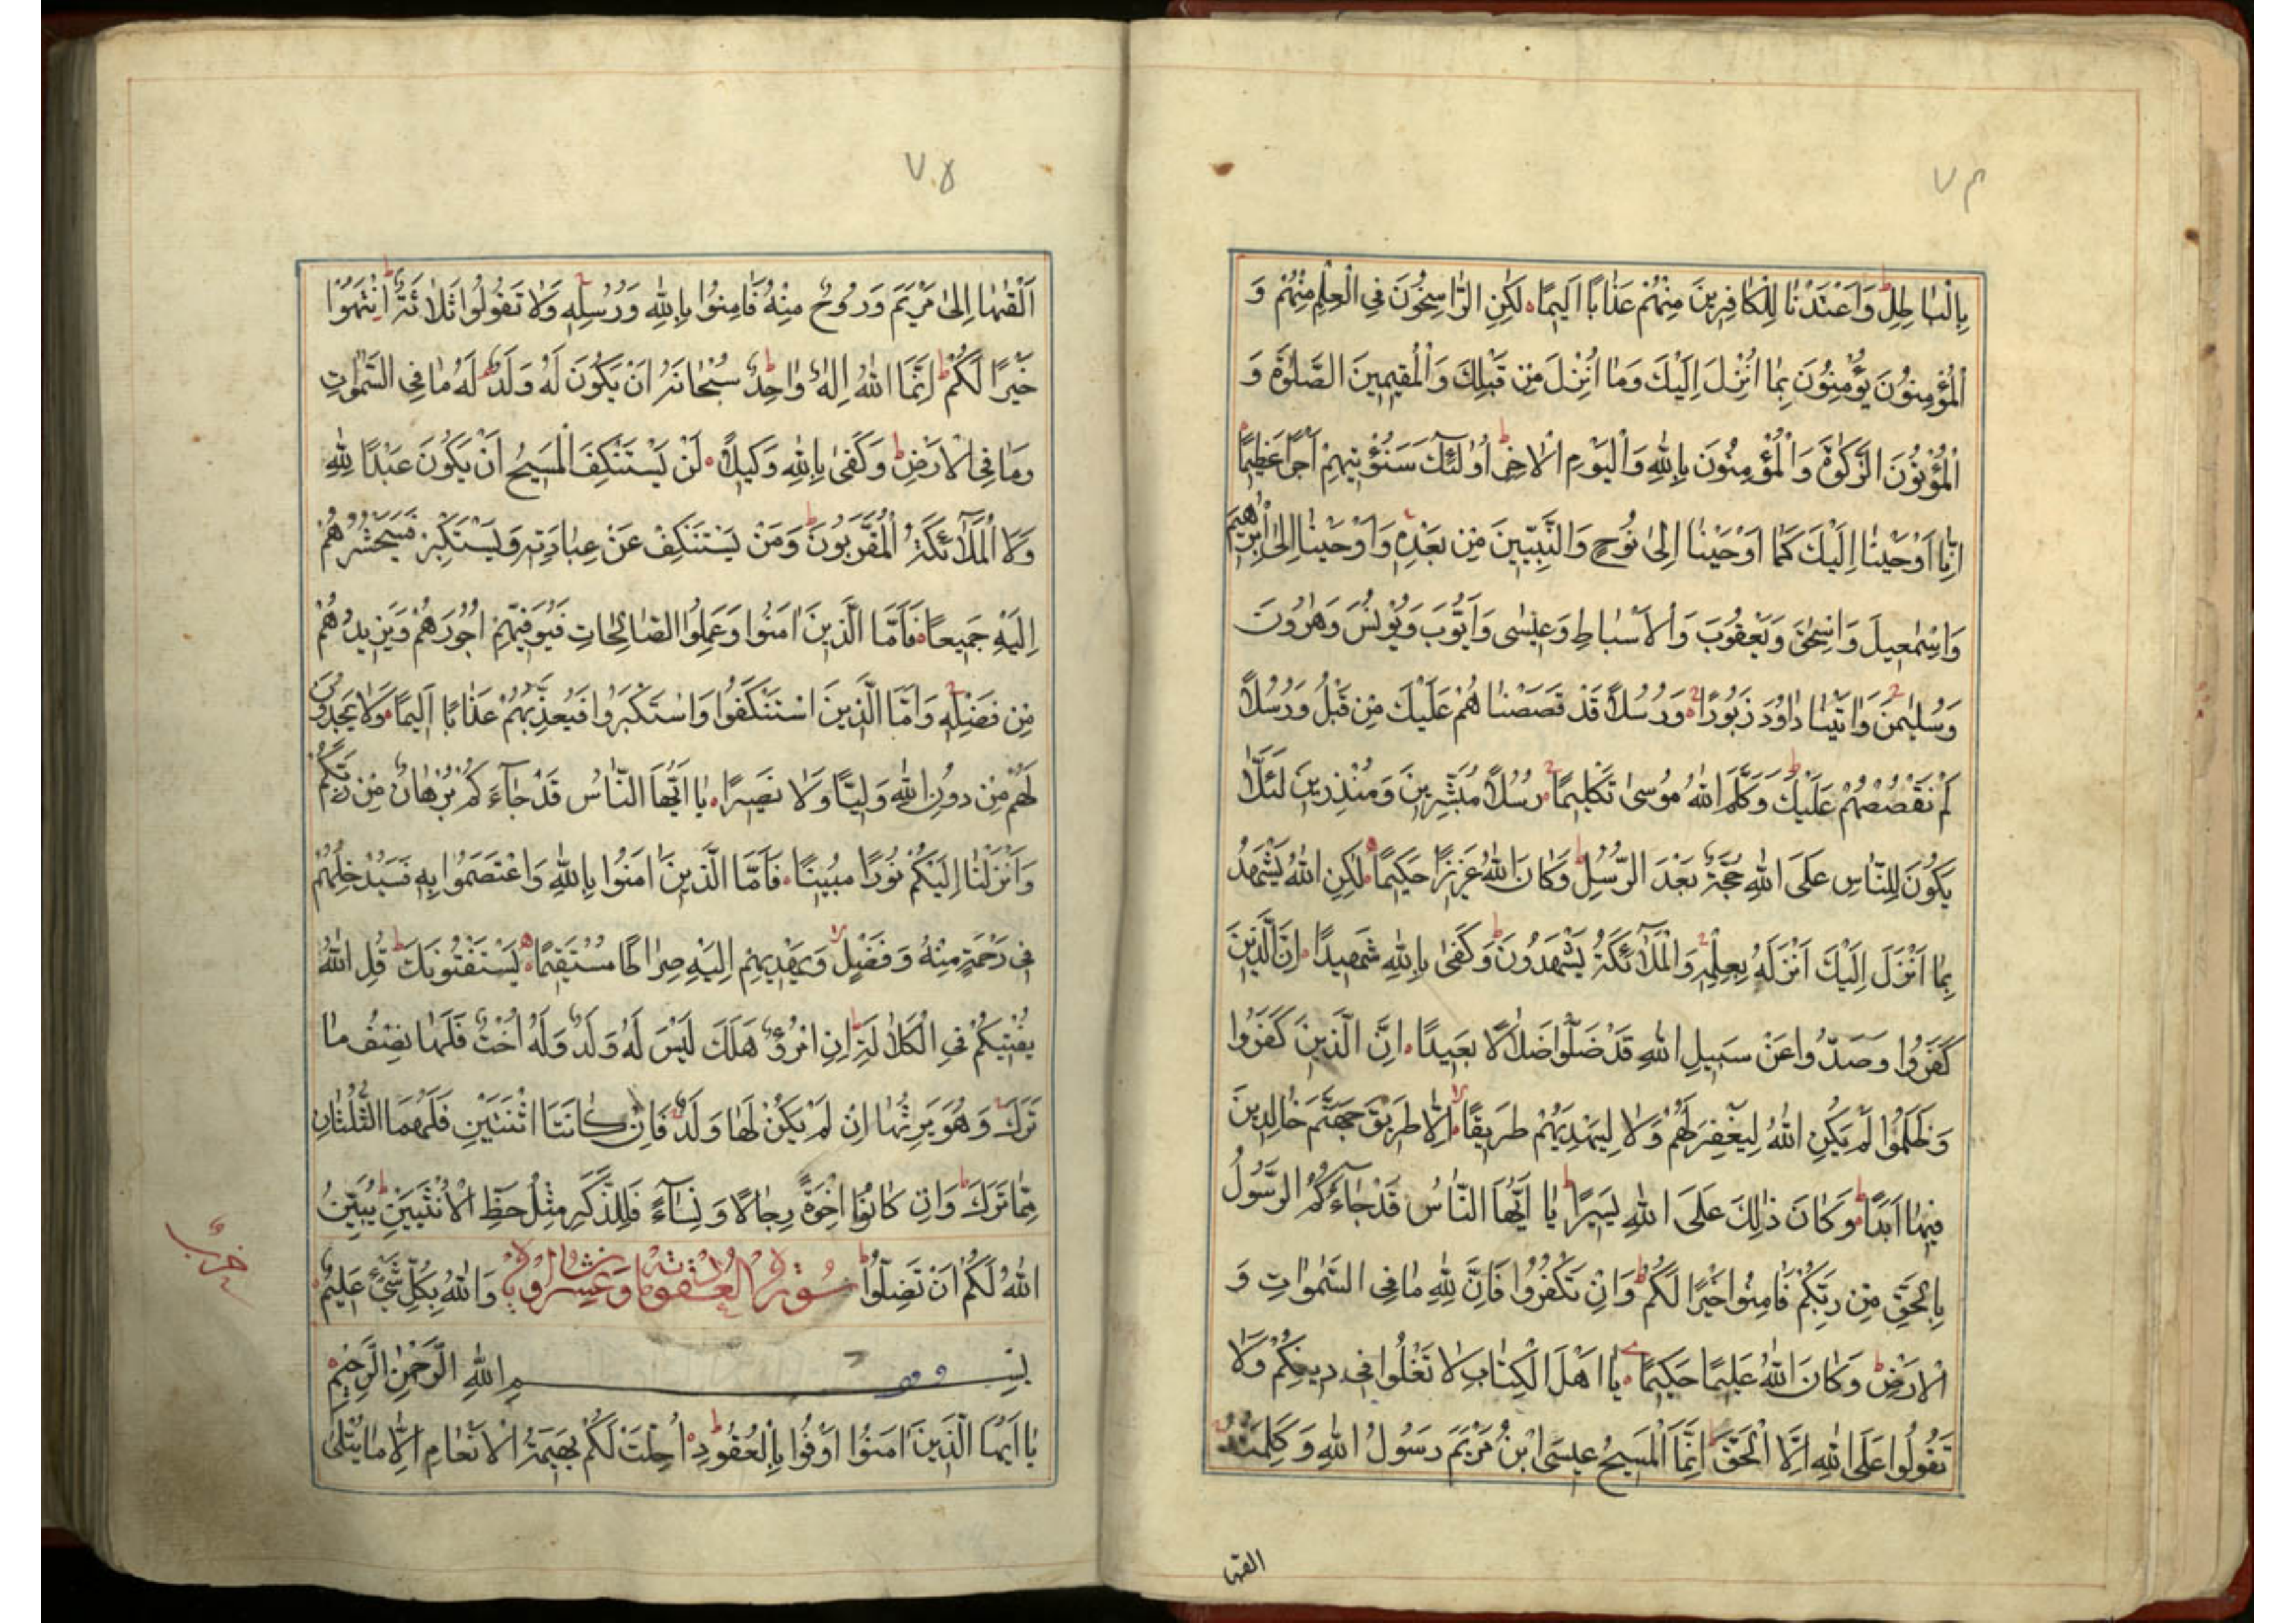 ٧٤
بِالْبَاطِلِ وَاَعْتَدْنَا لِلْكَافِرِينَ مِنْهُمْ عَذَابًا اَلِيمًا لٰكِنِ الرَّاسِخُونَ فِي الْعِلْمِ مِنْهُمْ وَ
الْمُؤْمِنُونَ يُؤْمِنُونَ بِمَا اُنْزِلَ اِلَيْكَ وَمَا اُنْزِلَ مِنْ قَبْلِكَ وَالْمُقِيمِينَ الصَّلٰوةَ وَ
الْمُؤْتُونَ الزَّكٰوةَ وَالْمُؤْمِنُونَ بِاللهِ وَالْيَوْمِ الْاٰخِرِ اُولٰئِكَ سَنُؤْتِيهِمْ اَجْرًا عَظِيمًا
اِنَّا اَوْحَيْنَا اِلَيْكَ كَمَا اَوْحَيْنَا اِلٰى نُوحٍ وَالنَّبِيِّينَ مِنْ بَعْدِهِ وَاَوْحَيْنَا اِلٰى اِبْرٰهِيمَ
وَاِسْمٰعِيلَ وَاِسْحٰقَ وَيَعْقُوبَ وَالْاَسْبَاطِ وَعِيسٰى وَاَيُّوبَ وَيُونُسَ وَهٰرُونَ
وَسُلَيْمٰنَ وَاٰتَيْنَا دَاوُدَ زَبُورًا وَرُسُلًا قَدْ قَصَصْنَاهُمْ عَلَيْكَ مِنْ قَبْلُ وَرُسُلًا
لَمْ نَقْصُصْهُمْ عَلَيْكَ وَكَلَّمَ اللهُ مُوسٰى تَكْلِيمًا رُسُلًا مُبَشِّرِينَ وَمُنْذِرِينَ لِئَلَّا
يَكُونَ لِلنَّاسِ عَلَى اللهِ حُجَّةٌ بَعْدَ الرُّسُلِ وَكَانَ اللهُ عَزِيزًا حَكِيمًا لٰكِنِ اللهُ يَشْهَدُ
بِمَا اَنْزَلَ اِلَيْكَ اَنْزَلَهُ بِعِلْمِهِ وَالْمَلٰٓئِكَةُ يَشْهَدُونَ وَكَفٰى بِاللهِ شَهِيدًا اِنَّ الَّذِينَ
كَفَرُوا وَصَدُّوا عَنْ سَبِيلِ اللهِ قَدْ ضَلُّوا ضَلَالًا بَعِيدًا اِنَّ الَّذِينَ كَفَرُوا
وَظَلَمُوا لَمْ يَكُنِ اللهُ لِيَغْفِرَ لَهُمْ وَلَا لِيَهْدِيَهُمْ طَرِيقًا اِلَّا طَرِيقَ جَهَنَّمَ خَالِدِينَ
فِيهَا اَبَدًا وَكَانَ ذٰلِكَ عَلَى اللهِ يَسِيرًا يَا اَيُّهَا النَّاسُ قَدْ جَاءَكُمُ الرَّسُولُ
بِالْحَقِّ مِنْ رَبِّكُمْ فَاٰمِنُوا خَيْرًا لَكُمْ وَاِنْ تَكْفُرُوا فَاِنَّ لِلهِ مَا فِي السَّمٰوَاتِ وَ
الْاَرْضِ وَكَانَ اللهُ عَلِيمًا حَكِيمًا يَا اَهْلَ الْكِتَابِ لَا تَغْلُوا فِي دِينِكُمْ وَلَا
تَقُولُوا عَلَى اللهِ اِلَّا الْحَقَّ اِنَّمَا الْمَسِيحُ عِيسَى ابْنُ مَرْيَمَ رَسُولُ اللهِ وَكَلِمَتُهُ
القيها
٧٥
اَلْقٰيهَا اِلٰى مَرْيَمَ وَرُوحٌ مِنْهُ فَاٰمِنُوا بِاللهِ وَرُسُلِهِ وَلَا تَقُولُوا ثَلَاثَةٌ اِنْتَهُوا
خَيْرًا لَكُمْ اِنَّمَا اللهُ اِلٰهٌ وَاحِدٌ سُبْحَانَهُ اَنْ يَكُونَ لَهُ وَلَدٌ لَهُ مَا فِي السَّمٰوَاتِ
وَمَا فِي الْاَرْضِ وَكَفٰى بِاللهِ وَكِيلًا لَنْ يَسْتَنْكِفَ الْمَسِيحُ اَنْ يَكُونَ عَبْدًا لِلهِ
وَلَا الْمَلٰٓئِكَةُ الْمُقَرَّبُونَ وَمَنْ يَسْتَنْكِفْ عَنْ عِبَادَتِهِ وَيَسْتَكْبِرْ فَسَيَحْشُرُهُمْ
اِلَيْهِ جَمِيعًا فَاَمَّا الَّذِينَ اٰمَنُوا وَعَمِلُوا الصَّالِحَاتِ فَيُوَفِّيهِمْ اُجُورَهُمْ وَيَزِيدُهُمْ
مِنْ فَضْلِهِ وَاَمَّا الَّذِينَ اسْتَنْكَفُوا وَاسْتَكْبَرُوا فَيُعَذِّبُهُمْ عَذَابًا اَلِيمًا وَلَا يَجِدُونَ
لَهُمْ مِنْ دُونِ اللهِ وَلِيًّا وَلَا نَصِيرًا يَا اَيُّهَا النَّاسُ قَدْ جَاءَكُمْ بُرْهَانٌ مِنْ رَبِّكُمْ
وَاَنْزَلْنَا اِلَيْكُمْ نُورًا مُبِينًا فَاَمَّا الَّذِينَ اٰمَنُوا بِاللهِ وَاعْتَصَمُوا بِهِ فَسَيُدْخِلُهُمْ
فِي رَحْمَةٍ مِنْهُ وَفَضْلٍ وَيَهْدِيهِمْ اِلَيْهِ صِرَاطًا مُسْتَقِيمًا يَسْتَفْتُونَكَ قُلِ اللهُ
يُفْتِيكُمْ فِي الْكَلَالَةِ اِنِ امْرُؤٌ هَلَكَ لَيْسَ لَهُ وَلَدٌ وَلَهُ اُخْتٌ فَلَهَا نِصْفُ مَا
تَرَكَ وَهُوَ يَرِثُهَا اِنْ لَمْ يَكُنْ لَهَا وَلَدٌ فَاِنْ كَانَتَا اثْنَتَيْنِ فَلَهُمَا الثُّلُثَانِ
مِمَّا تَرَكَ وَاِنْ كَانُوا اِخْوَةً رِجَالًا وَنِسَاءً فَلِلذَّكَرِ مِثْلُ حَظِّ الْاُنْثَيَيْنِ يُبَيِّنُ
اللهُ لَكُمْ اَنْ تَضِلُّوا وَاللهُ بِكُلِّ شَيْءٍ عَلِيمٌ
حزب
بِسْمِ اللهِ الرَّحْمٰنِ الرَّحِيمِ
يَا اَيُّهَا الَّذِينَ اٰمَنُوا اَوْفُوا بِالْعُقُودِ اُحِلَّتْ لَكُمْ بَهِيمَةُ الْاَنْعَامِ اِلَّا مَا يُتْلٰى